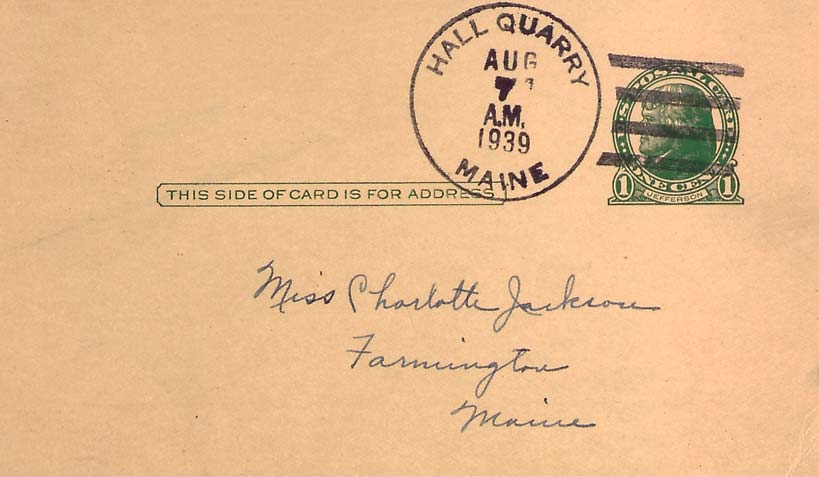 HALL QUARRY
AUG
7
A.M.
1939
MAINE
U.S. POSTAL CARD
1 ONE CENT 1
JEFFERSON
THIS SIDE OF CARD IS FOR ADDRESS
Miss Charlotte Jackson
Farmington
Maine